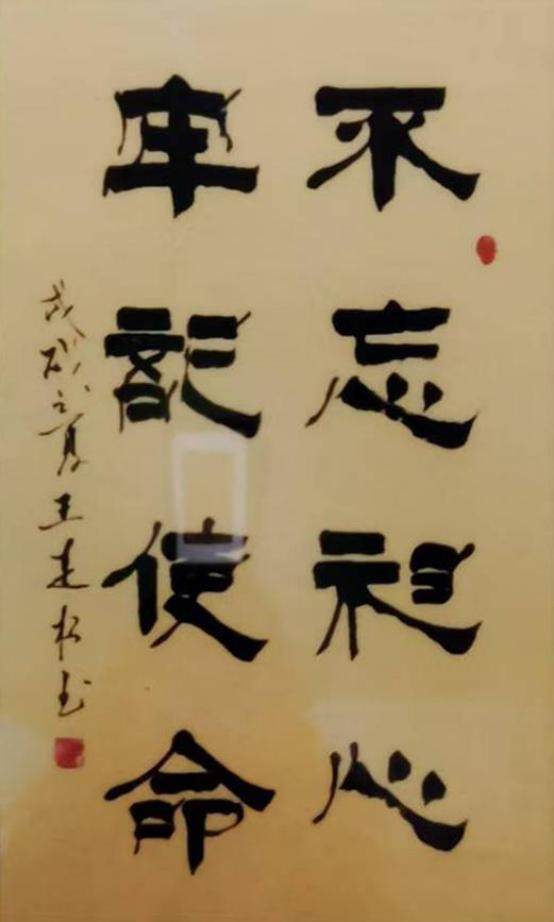 不忘初心
牢記使命
戊戌之夏王走松书